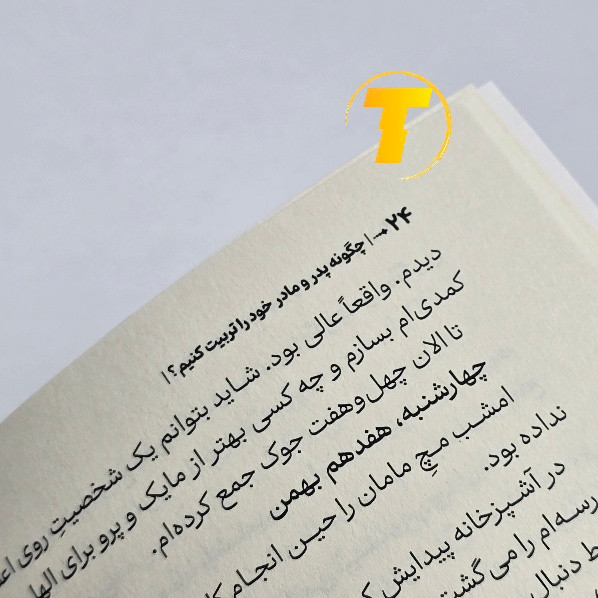 T
۲۴ | چگونه پدر و مادر خود را تربیت کنیم؟ |
دیدم. واقعاً عالی بود. شاید بتوانم یک شخصیتِ روی
کمدی‌ام بسازم و چه کسی بهتر از مایک و پرو برای
تا الان چهل‌وهفت جوک جمع کرده‌ام.
چهارشنبه، هفدهم بهمن
امشب مچِ مامان را حین انجام
نداده بود.
در آشپزخانه پیدایش
را می‌گشت
دنبال